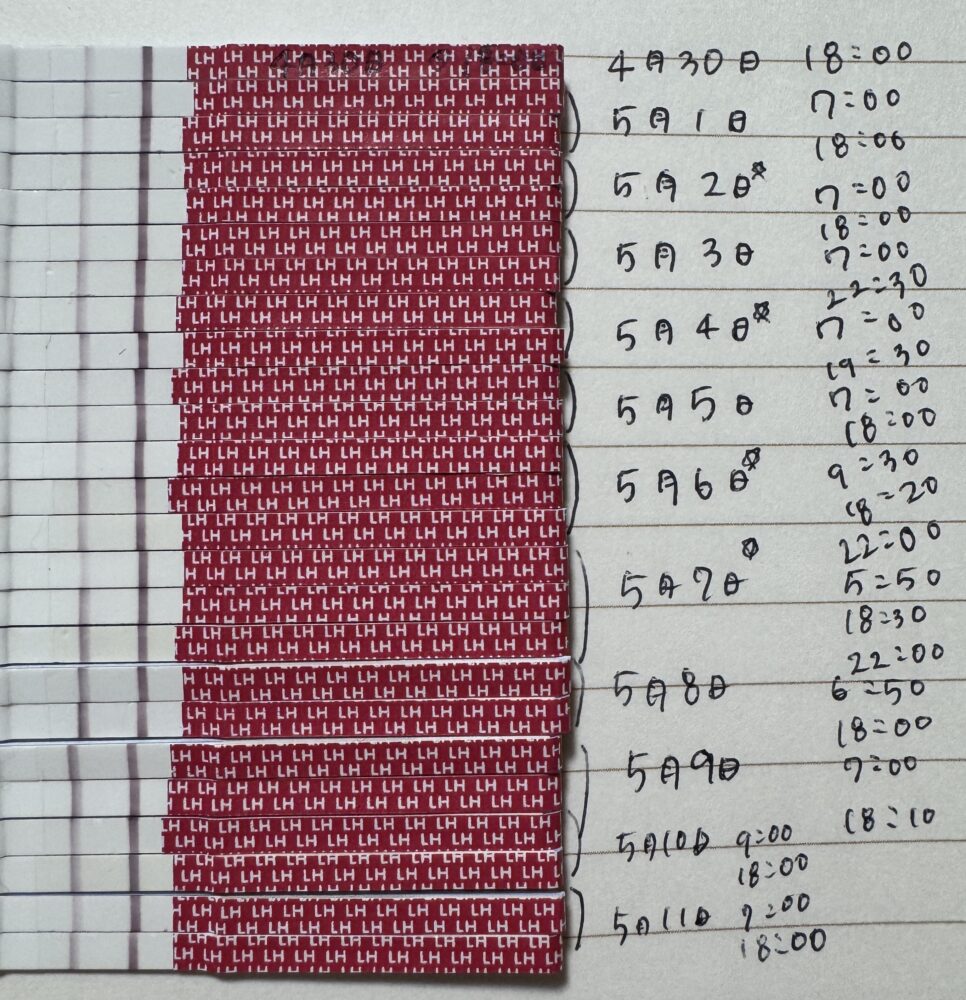 4月30日 18:00
7:00
5月1日
18:00
5月2日☆
7:00
18:00
5月3日
7:00
22:30
5月4日☆
7:00
19:30
5月5日
7:00
18:00
5月6日☆
9:30
18:20
22:00
5月7日
5:50
18:30
22:00
5月8日
6:50
18:00
5月9日
7:00
18:10
5月10日 9:00
18:00
5月11日 7:00
18:00
LH LH LH LH LH LH LH LH LH LH LH